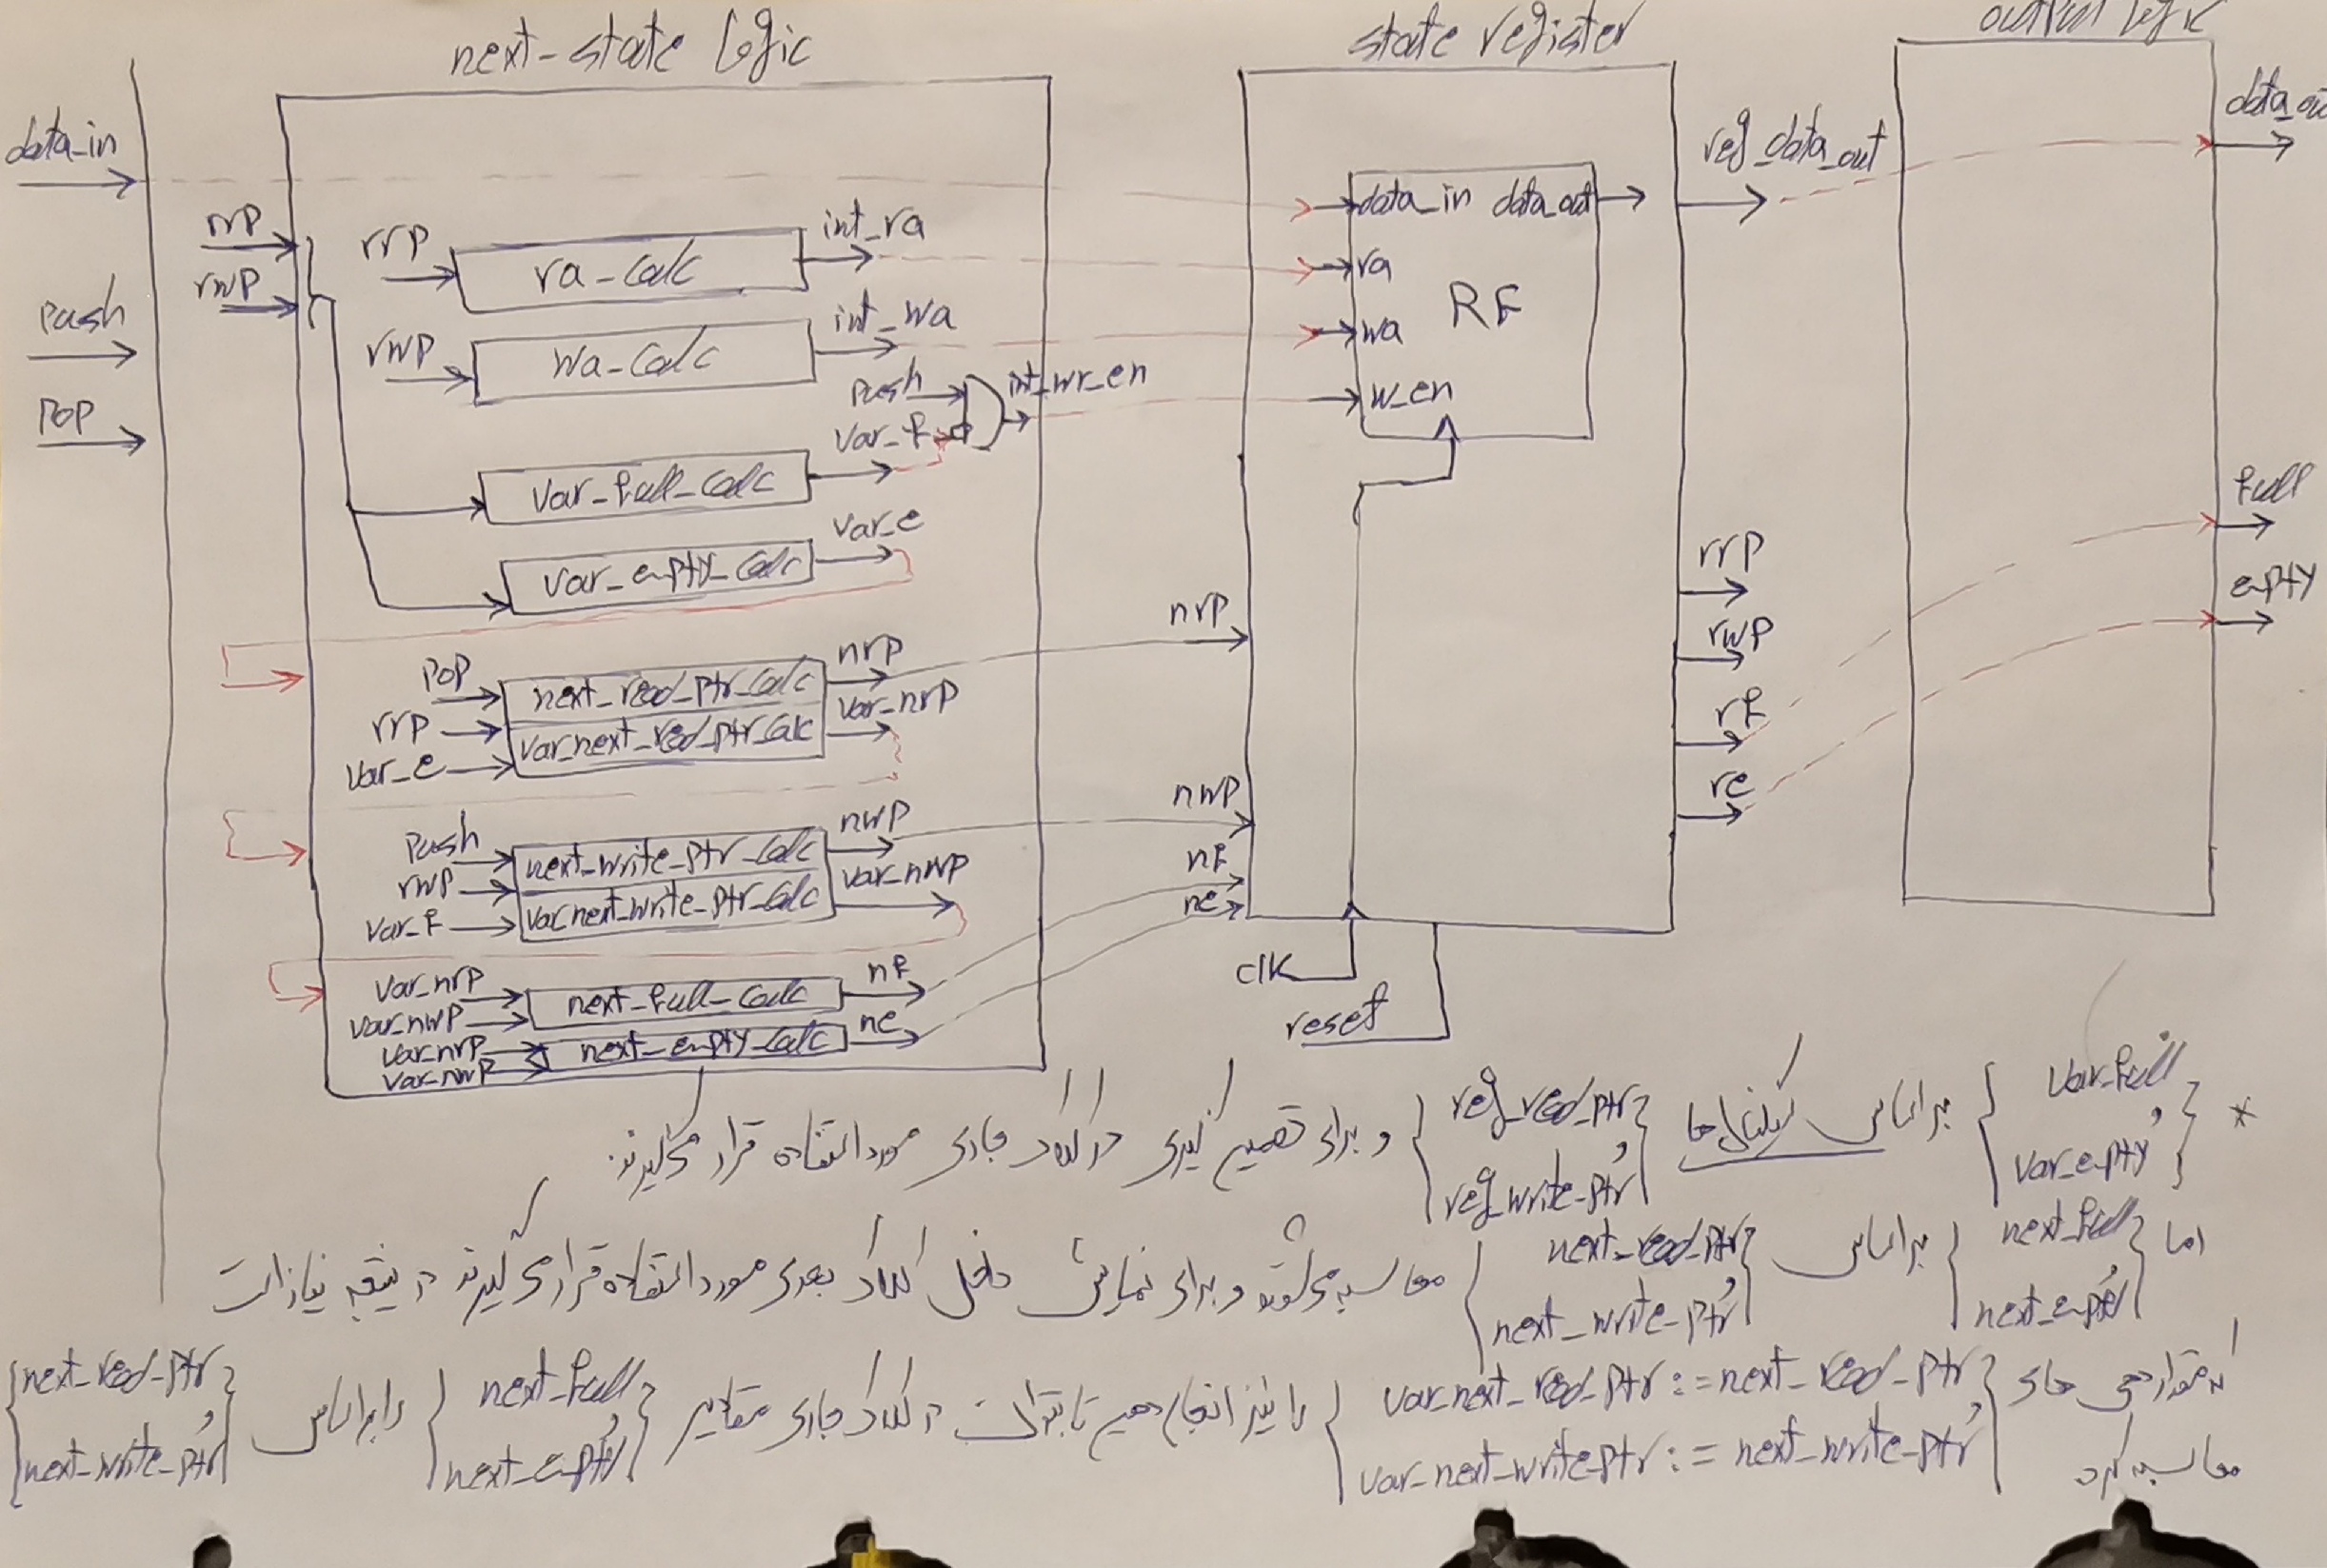 next-state logic
state register
output logic
data_in
push
pop
rrp
rwp
rrp
ra-calc
int_ra
rwp
wa-calc
int_wa
push
var_f
int_wr_en
var-full-calc
var_empty_calc
var_e
pop
rrp
var_e
next_read_ptr_calc
var_next_read_ptr_calc
nrp
var_nrp
push
rwp
var_f
next_write_ptr_calc
var_next_write_ptr_calc
nwp
var_nwp
var_nrp
var_nwp
next_full_calc
nf
var_nrp
var_nwp
next_empty_calc
ne
data_in data_out
ra
RF
wa
w_en
nrp
nwp
nf
ne
clk
reset
reg_data_out
rrp
rwp
rf
re
data_out
full
empty
* { var_full و var_empty } براساس سیگنال‌ها { reg_read_ptr و reg_write_ptr } و برای تصمیم گیری در کلاک جاری مورد استفاده قرار می‌گیرند.
اما { next_full و next_empty } براساس { next_read_ptr و next_write_ptr } محاسبه می‌شوند و برای نمایش داخل کلاک بعدی مورد استفاده قرار می‌گیرند در نتیجه نیاز است
که مقداردهی های { var_next_read_ptr := next_read_ptr و var_next_write_ptr := next_write_ptr } را نیز انجام دهیم تا بتوان در کلاک جاری مقادیر { next_full و next_empty } را براساس { next_read_ptr و next_write_ptr }
محاسبه کرد